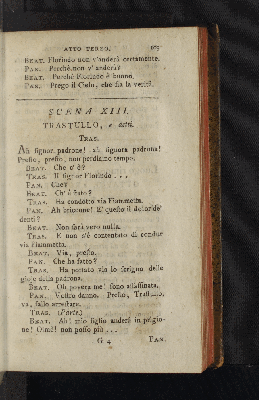 ATTO TERZO.
BEAT. Florindo non v'anderà certamente.
PAN. Perchè non v'anderà?
BEAT. Perchè Florindo è buono.
PAN. Prego il Cielo, che sia la verità.
SCENA XIII.
TRASTULLO, e detti.
TRAS.
Ah signor padrone! ah signora padrona!
Presto, presto, non perdiamo tempo.
BEAT. Che c'è?
TRAS. Il signor Florindo . . .
PAN. Cos'?
BEAT. Ch' è fato?
TRAS. Ha condotto via Fiammetta.
PAN. Ah briccone! E' questo il dolor de'
denti?
BEAT. Non sarà vero nulla.
TRAS. E non s'è contentato di condur
via Fiammetta.
BEAT. Via, presto.
PAN. Che ha fatto?
TRAS. Ha portato via lo scrigno delle
gioje della padrona.
BEAT. Oh povera me! sono assassinata.
PAN. Vostro danno. Presto, Trastullo,
va, fallo arrestare.
TRAS. (Parte.)
BEAT. Ah! mio figlio anderà in prigio-
ne! Oimè! non posso più . . .
G 4 PAN.